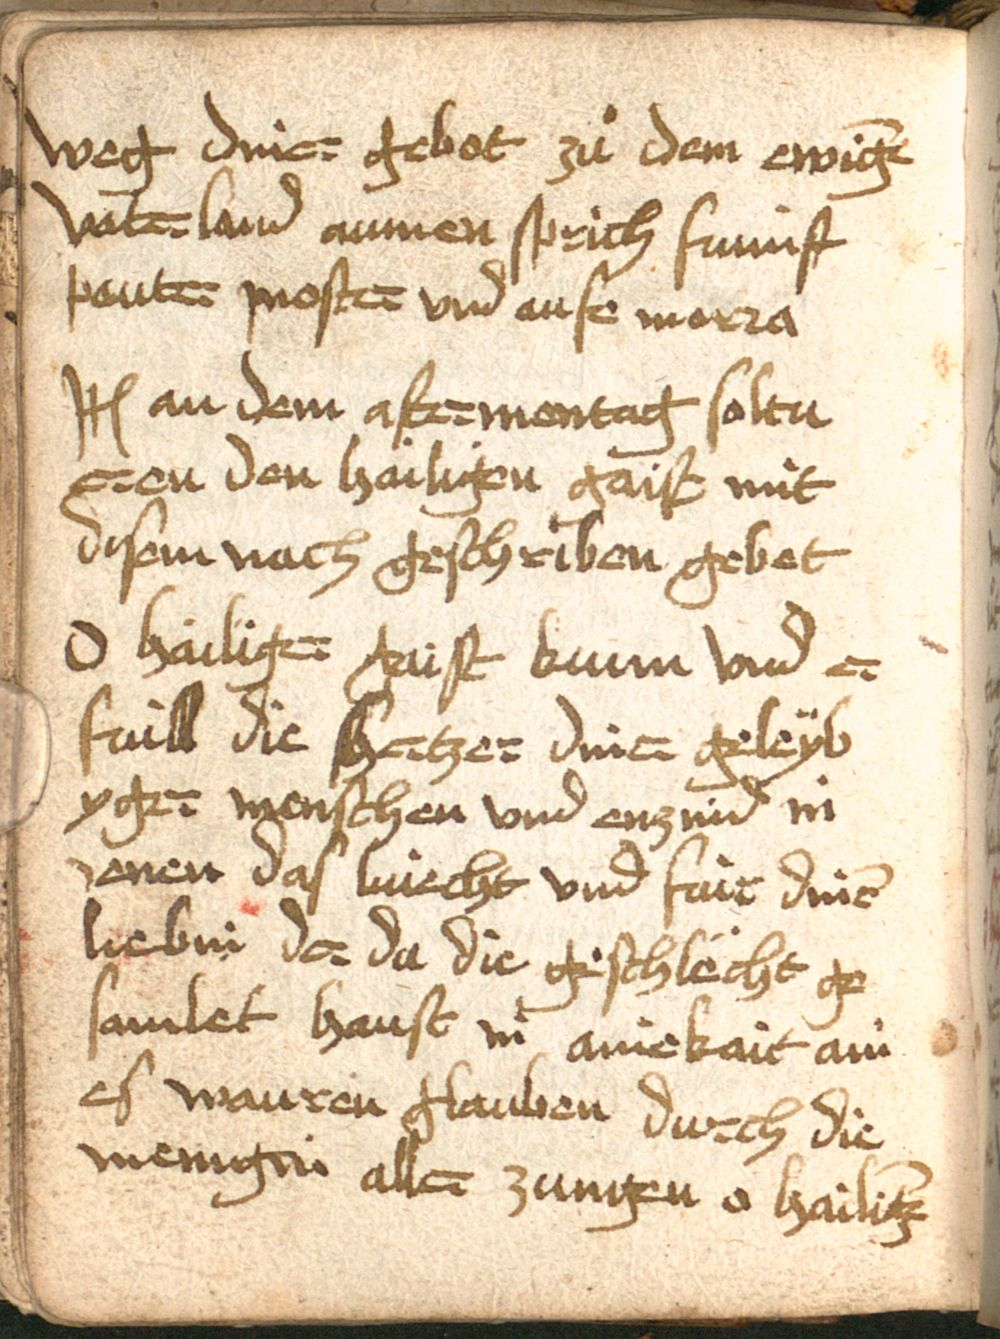 weg diner gebot zuͦ dem ewigē
vater land aumen sprich funnft
pauter noster vnd aufe merza
Itē an dem aftermontag soltu
eren den hailigen gaist mit
disem nach geschriben gebet
O hailiger gaist kumm vnd er
fuill die hertzer diner geleÿb
yger menschen vnd enzind in
jenen das luiecht vnd fuir dinē
liebin der da die geschlëcht ge
samlet haust in ainekait ain
es wauren glauben durch die
menigin aller zungen o hailigē